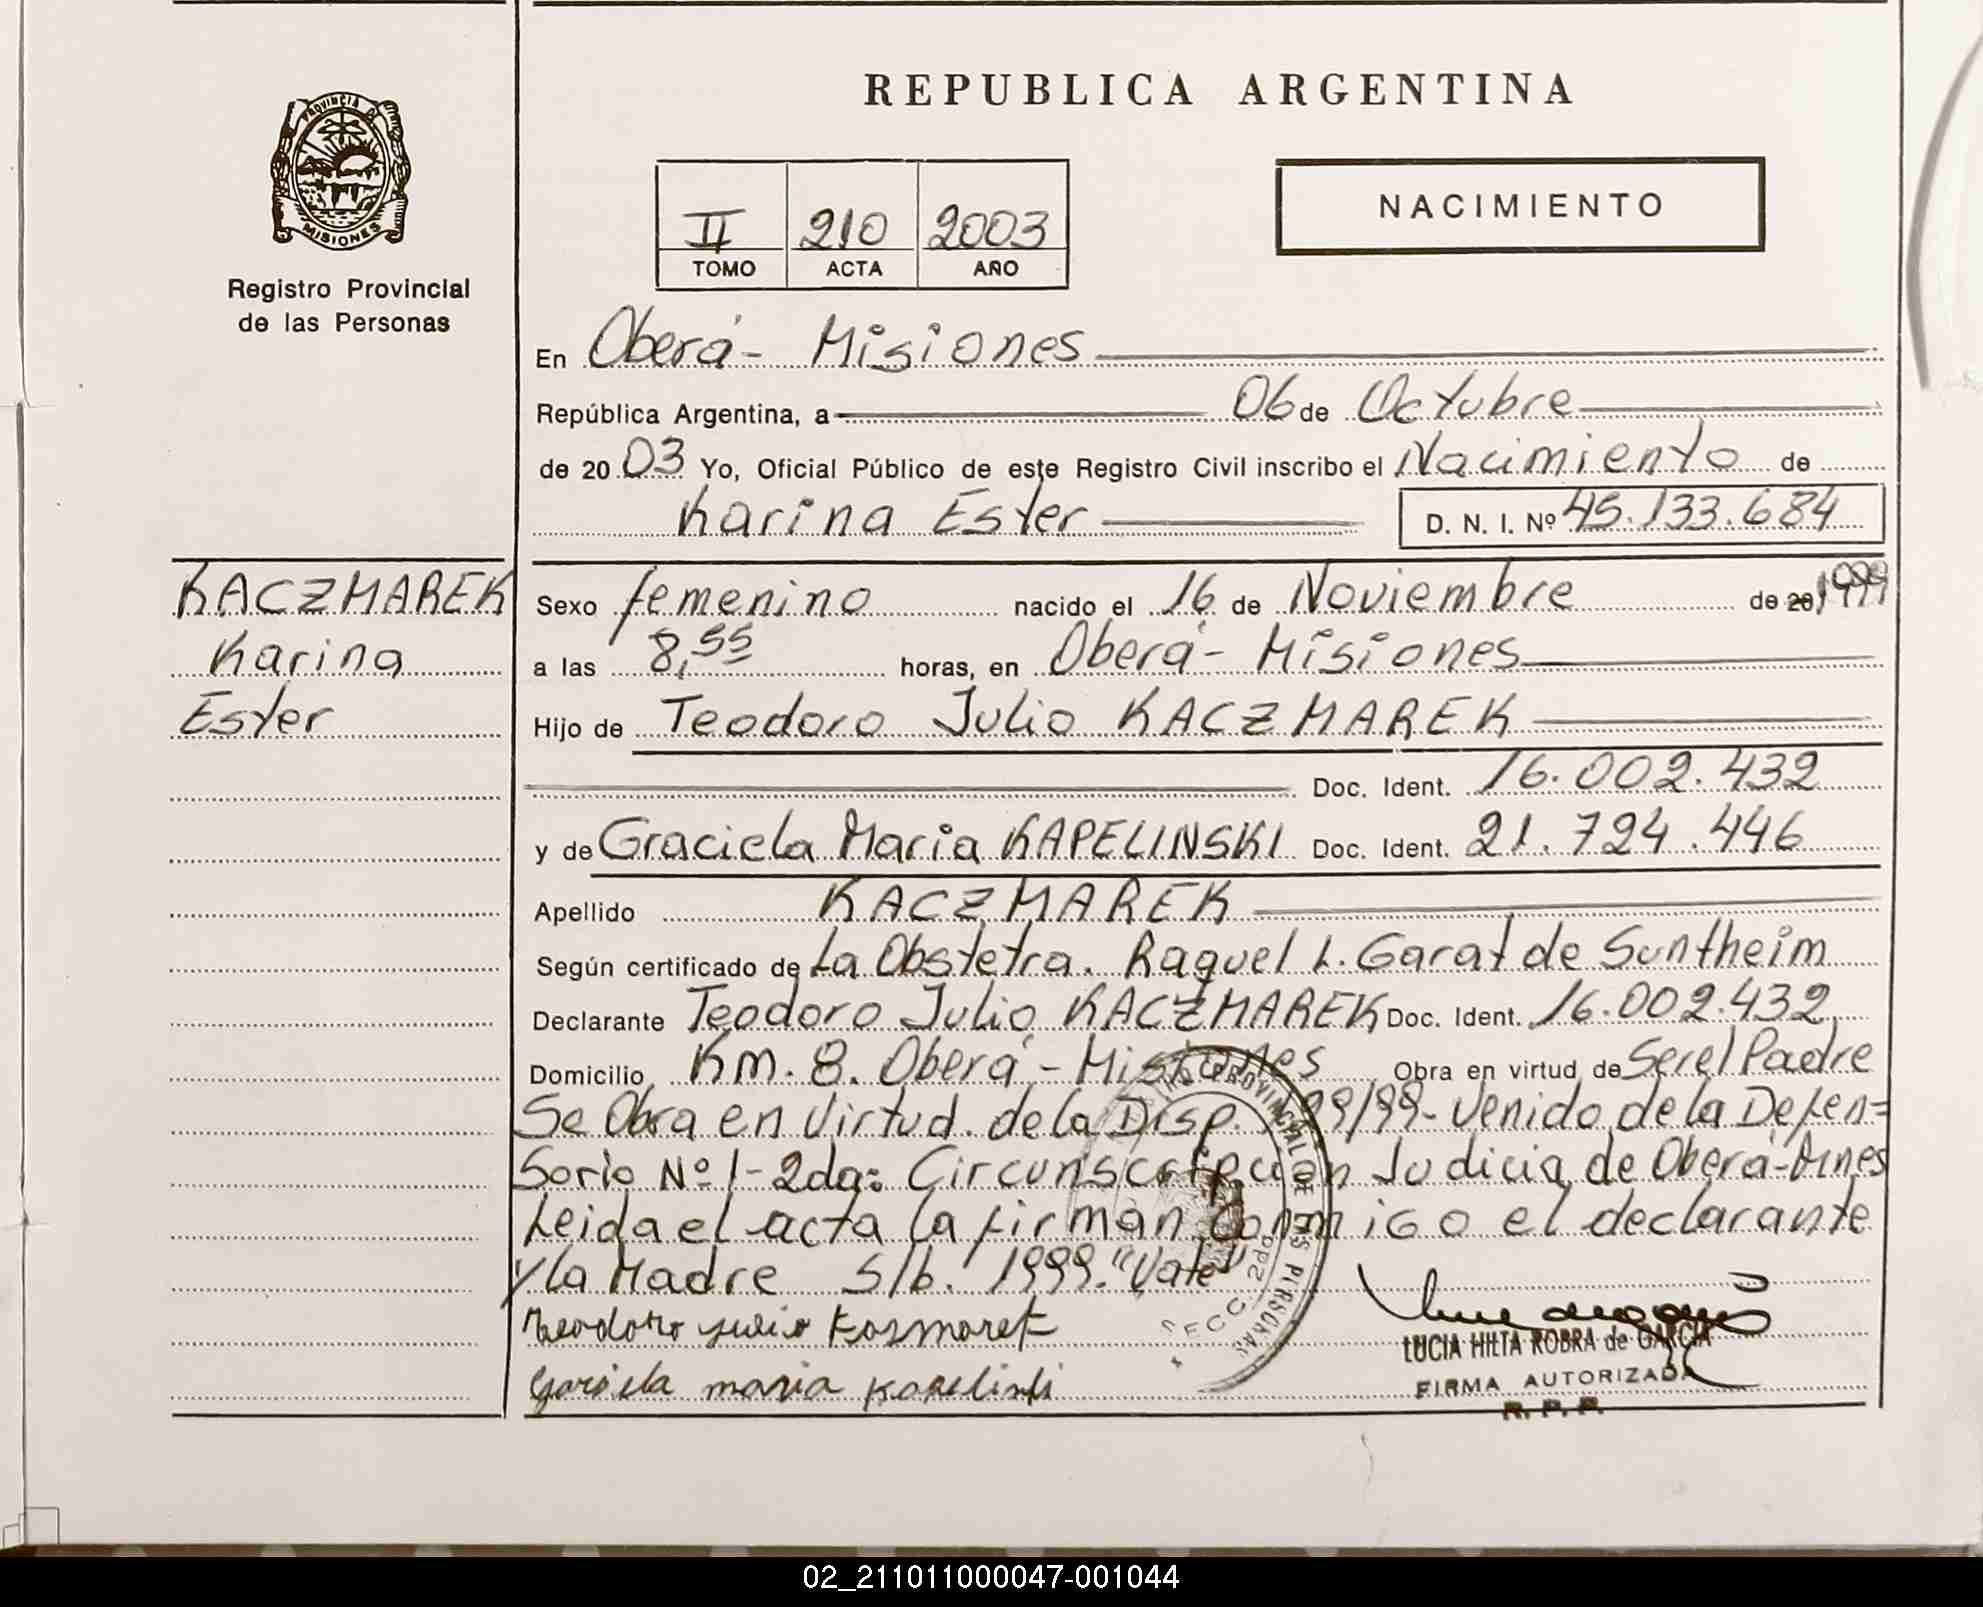 REPUBLICA ARGENTINA
PROVINCIA DE
MISIONES
Registro Provincial
de las Personas
II 210 2003
TOMO ACTA AÑO
NACIMIENTO
En Oberá - Misiones
República Argentina, a 06 de Octubre
de 20 03 Yo, Oficial Público de este Registro Civil inscribo el Nacimiento de
Karina Ester D. N. I. Nº 45.133.684
KACZMAREK
Karina
Ester
Sexo femenino nacido el 16 de Noviembre de 20 1999
a las 8,55 horas, en Oberá - Misiones
Hijo de Teodoro Julio KACZMAREK
Doc. Ident. 16.002.432
y de Graciela Maria KAPELINSKI Doc. Ident. 21.724.446
Apellido KACZMAREK
Según certificado de La Obstetra. Raquel L. Garat de Suntheim
Declarante Teodoro Julio KACZMAREK Doc. Ident. 16.002.432
Domicilio Km. 8. Oberá - Misiones Obra en virtud de Ser el Padre
Se Obra en Virtud. de la Disp. /99 - Venido de la Defen=
Soria Nº 1 - 2da: Circunscripcion Judicia de Oberá - Mnes
Leida el acta la firman Conmigo el declarante
y la Madre S/b. 1999. "Vale"
Teodoro Julio Kazmarek
maria Kapelinski
PROVINCIAL DE LAS PERSONAS
SECC. 2da
LUCIA HILTA ROBRA de GARCIA
FIRMA AUTORIZADA
R. P. P.
02_211011000047-001044